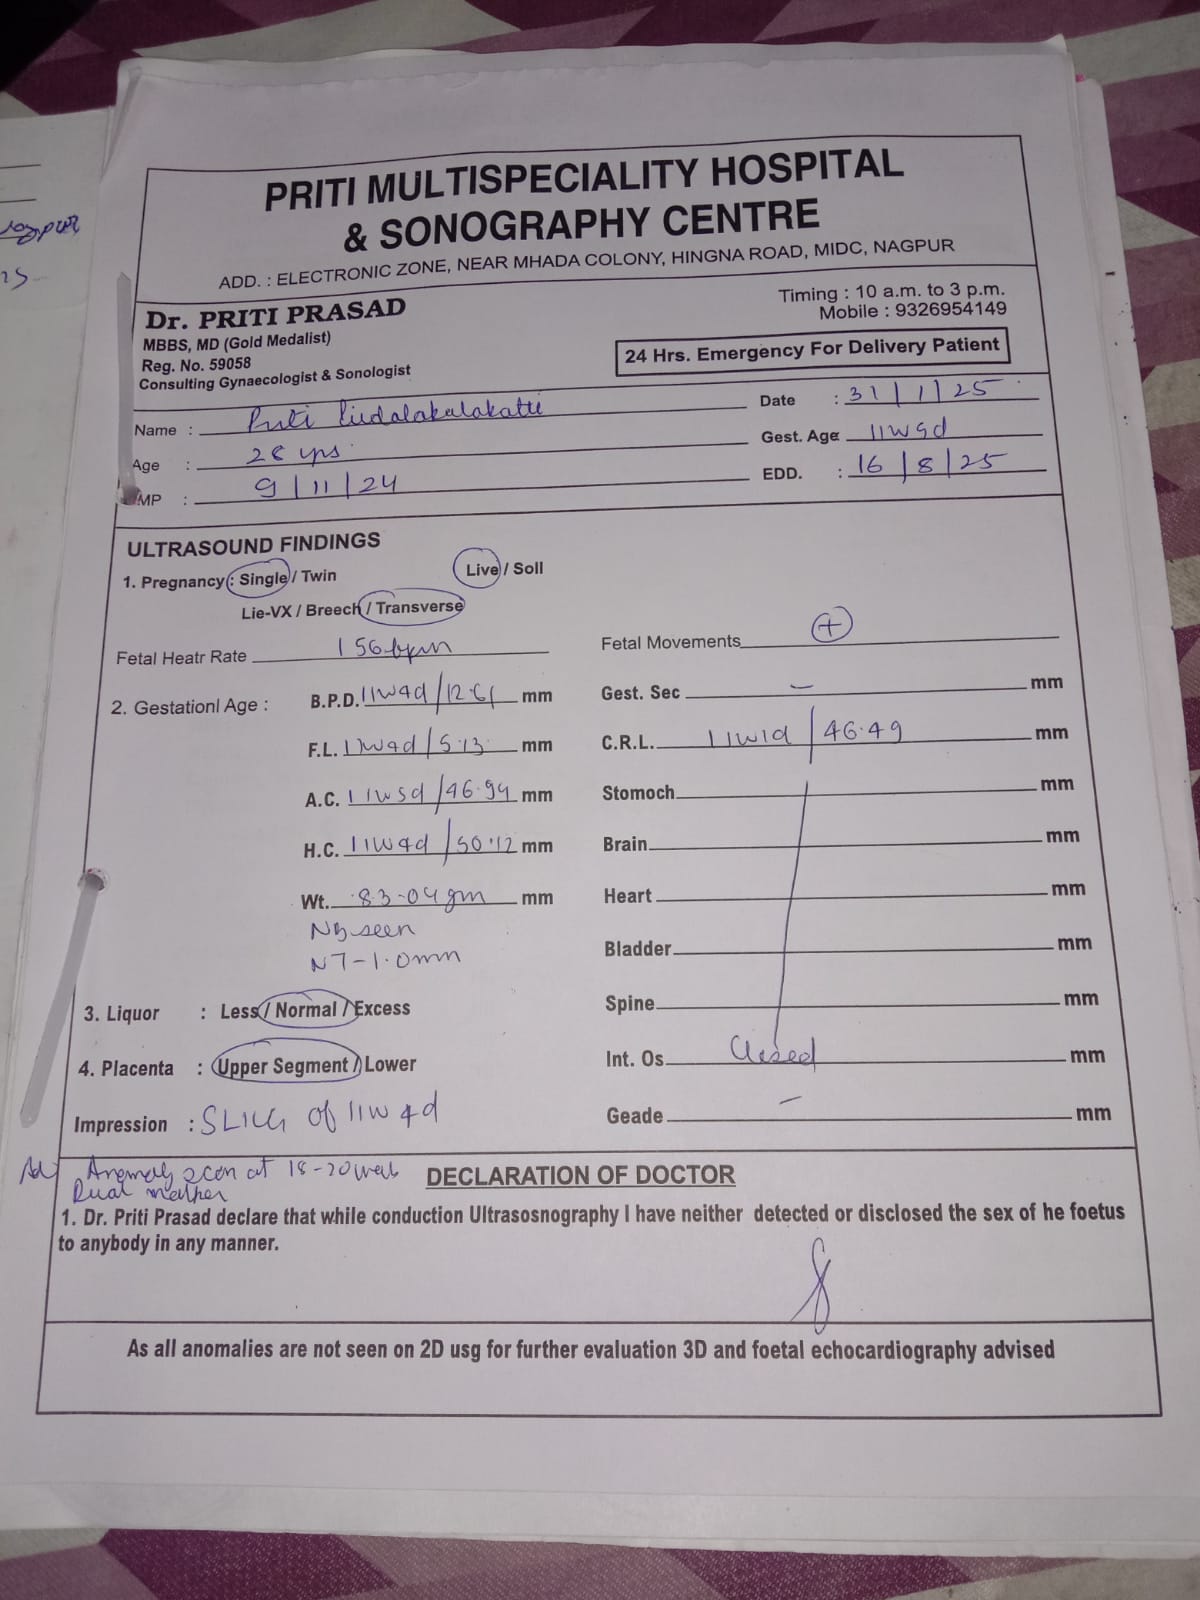 PRITI MULTISPECIALITY HOSPITAL
& SONOGRAPHY CENTRE
ADD. : ELECTRONIC ZONE, NEAR MHADA COLONY, HINGNA ROAD, MIDC, NAGPUR
Dr. PRITI PRASAD
MBBS, MD (Gold Medalist)
Reg. No. 59058
Consulting Gynaecologist & Sonologist
Timing : 10 a.m. to 3 p.m.
Mobile : 9326954149
24 Hrs. Emergency For Delivery Patient
Name : Priti
Date : 31/1/25
Age : 28 yrs.
Gest. Age 11w
MP : 9/11/24
EDD. : 16/8/25
ULTRASOUND FINDINGS
1. Pregnancy : Single / Twin Live / Soll
Lie-VX / Breech / Transverse
Fetal Heatr Rate 156bpm
Fetal Movements +
2. Gestationl Age : B.P.D. 11w4d/12.61 mm
Gest. Sec – mm
F.L. 11w4d/5.13 mm
C.R.L. 11w1d/46.49 mm
A.C. 11w5d/46.94 mm
Stomoch mm
H.C. 11w4d/50.12 mm
Brain mm
Wt. 83.04gm mm
Heart mm
NB seen
Bladder mm
NT-1.0mm
Spine mm
3. Liquor : Less / Normal / Excess
Int. Os Closed mm
4. Placenta : Upper Segment / Lower
Geade – mm
Impression : SLIUG of 11w4d
Adv Anomaly scan at 18-20 week
Dual marker
DECLARATION OF DOCTOR
1. Dr. Priti Prasad declare that while conduction Ultrasosnography I have neither detected or disclosed the sex of he foetus
to anybody in any manner.
As all anomalies are not seen on 2D usg for further evaluation 3D and foetal echocardiography advised